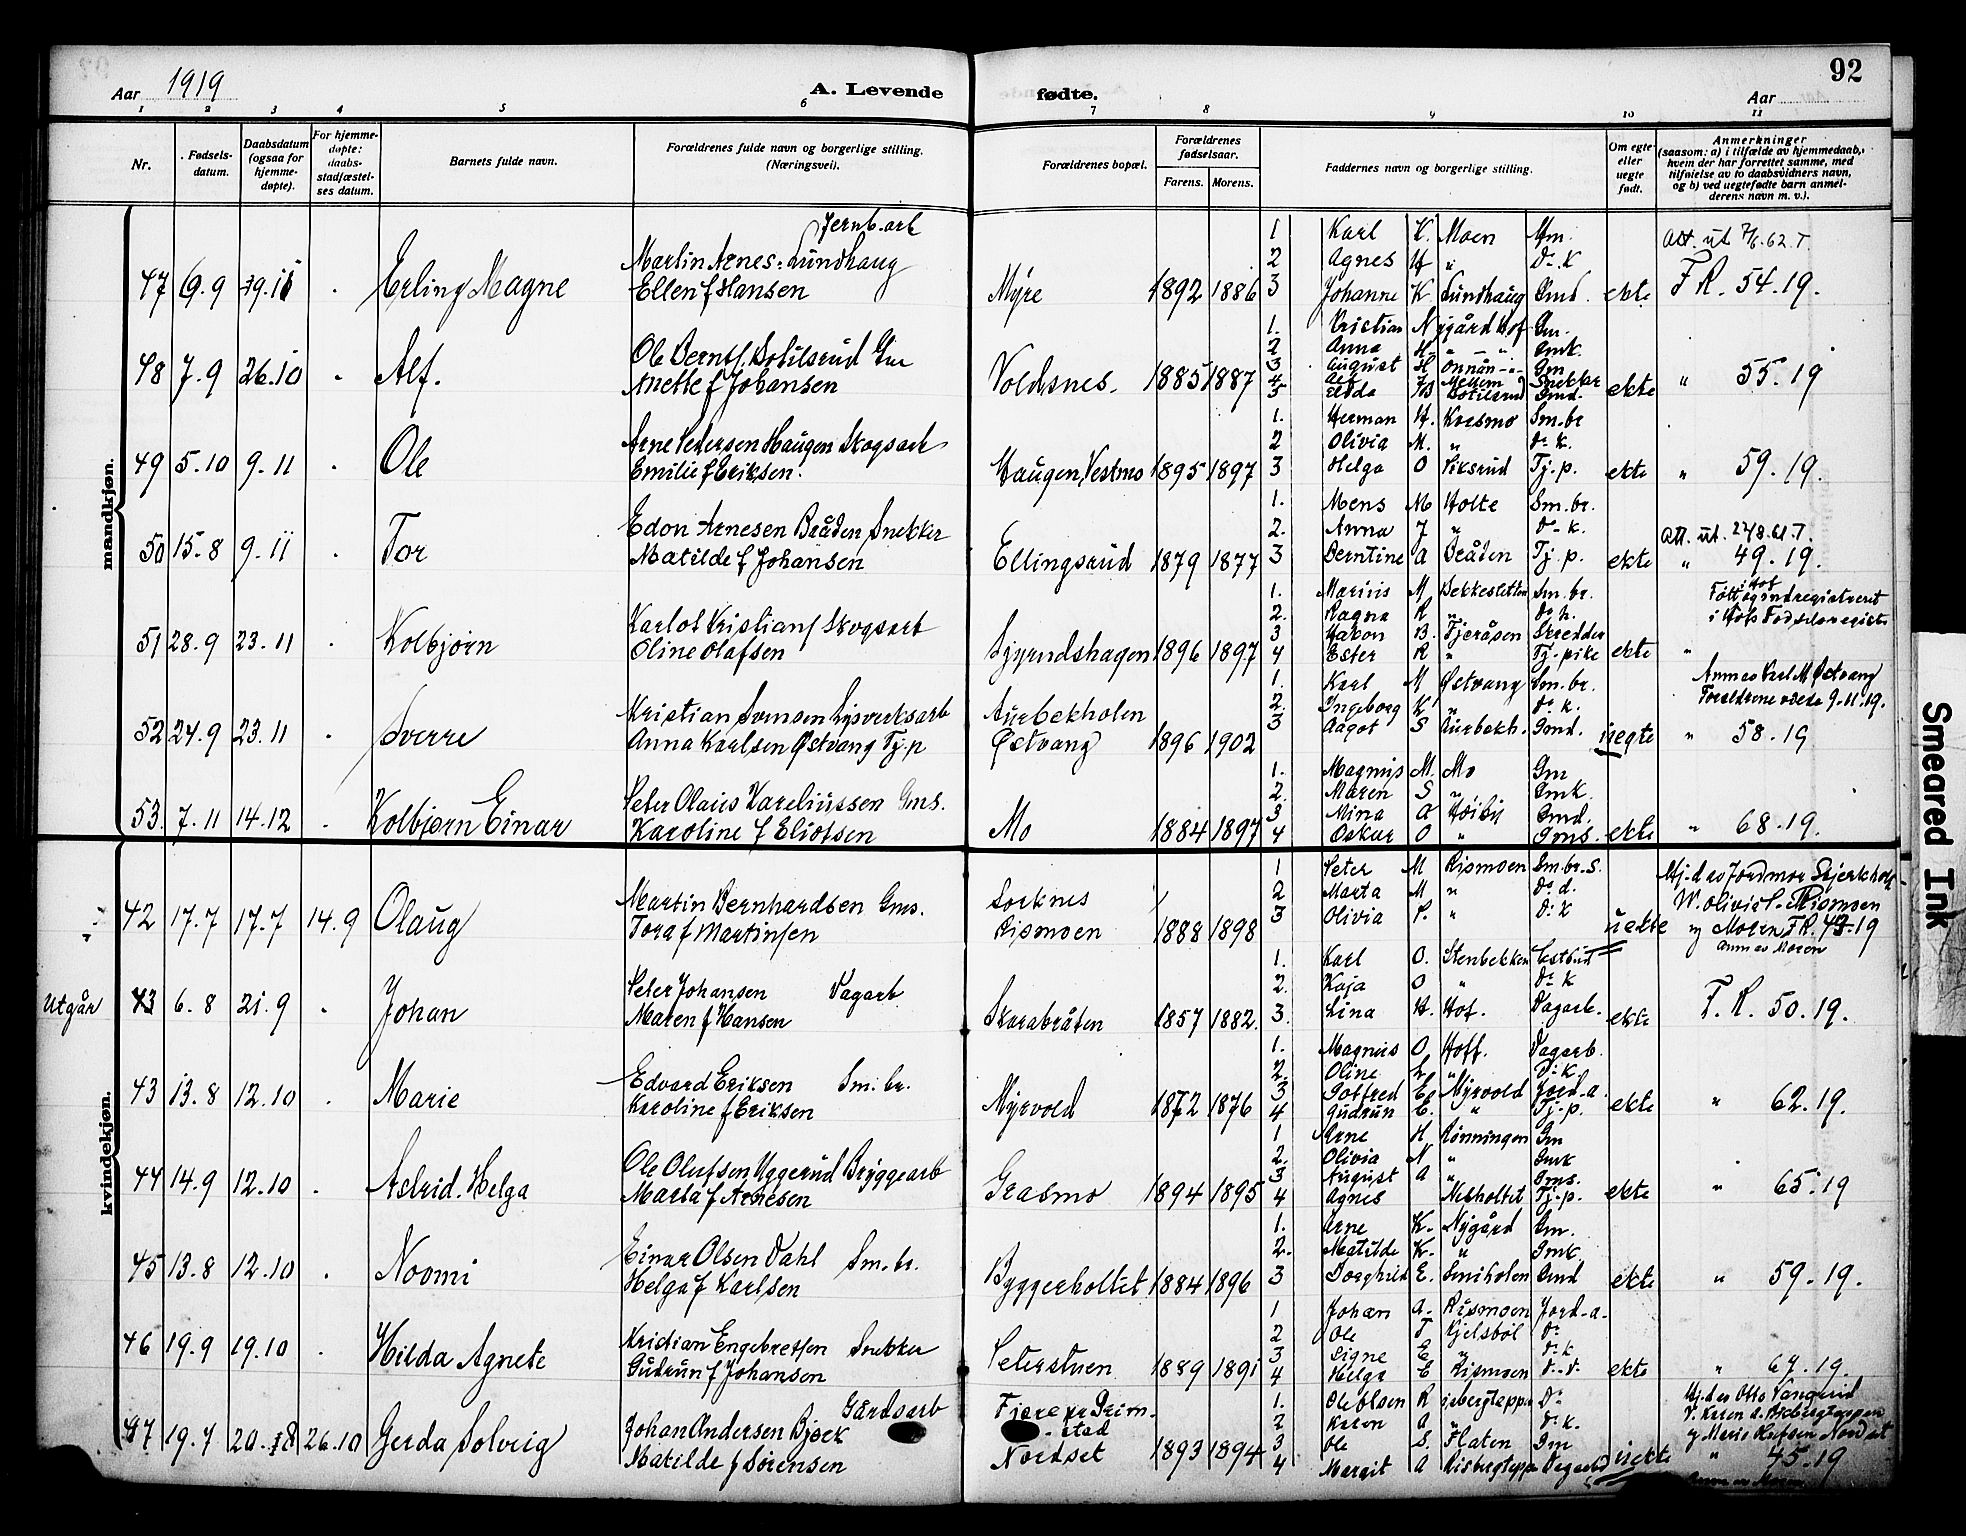 92
Aar 1919
A. Levende fødte.
Aar
1 2 3 4 5 6 7 8 9 10 11
Nr.
Fødsels-
datum.
Daabsdatum
(ogsaa for
hjemme-
døpte).
For hjemme-
døpte:
daabs-
stadfæstel-
ses datum.
Barnets fulde navn.
Forældrenes fulde navn og borgerlige stilling.
(Næringsvei).
Forældrenes bopæl.
Forældrenes
fødselsaar.
Farens. Morens.
Faddernes navn og borgerlige stilling.
Om egte
eller
uegte
født.
Anmerkninger
(saasom: a) i tilfælde av hjemmedaab,
hvem der har forrettet samme, med
tilføielse av to daabsvidners navn,
og b) ved uegtefødte barn anmel-
derens navn m. v.).
mandkjøn.
47 6.9 Erling Magne
Jernb.arb
Martin Arnes. Lundhaug
Ellen f Hansen
Myre 1892 1886
1 Karl K. Moen Gm.
2 Agnes H " Do. K
3 Johanne K Lundhaug Gmd.
ekte
Att. ut 7/6.62.T.
F.R. 54.19.
48 7.9 26.10 Alf.
Ole Berntf. Botilsrud Gm
Anette f Johansen
Voldsnes. 1885 1887
1. Kristian Nygård Hof Gm.
2 Anna H. " - " Gmk.
3 August H Gm
5 Botilsrud Gmd.
ekte
" 55.19
49 5.10 9.11 Ole
Arne Petersen Haugen Skogsarb
Emilie f Eriksen.
Haugen, Vestmo 1895 1897
1. Herman H. Korsmo Sm.br
2 Olivia M. " Do. k.
3 Helga O Viksrud Tj.p.
ekte
" 59.19.
50 15.8 9.11 Tor
Edon Arnesen Bråden Snekker
Matilde f Johansen
Ellingsrud 1879 1877
1. Mens M Holte Sm.br.
2. Anna J " Do-k.
3 Berntine A Bråden Tj.p.
ekte
Att. ut. 27/8.61.T.
" 49.19.
51 28.9 23.11 Kolbjørn
Karlot Kristianf Skogsarb
Oline Olafsen
Gjyrndshagen 1896 1897
1. Marius M Bekkesletten Sm.br.
2. Ragna R " Do k.
3 Håkon B. Fjeråsen Skredder
4 Ester R " Tj.pike
ekte
Født og indregistreret
i Hofs Fødselsregister
"
52 24.9 23.11 Sverre
Kristian Svensen Lysverksarb
Anna Karlsen Østvang Tj.p
Aurbekholen
Østvang 1896 1902
1. Karl M Østvang Sm.br.
2. Ingeborg K " Do. k.
3 Aagot S Aurbekh. Gmd.
uegte
Anm av Karl M Østvang
Foreldrene viede 9-11.19.
" 58.19
53. 7.11 14.12 Kolbjørn Einar
Peter Olaus Kareliussen Gms.
Karoline f Eliotsen
Mo 1884 1897
1. Magnus M. Mo Gm
2. Maren S " Gmk.
3 Mina A Høiby Gmd.
4 Oskar O " Gms.
ekte
" 68.19.
kvindekjøn.
42 17.7 17.7 14.9 Olaug
Martin Bernhardsen Gms.
Tora f Martinsen
Sorknes
Rismoen 1888 1898
1 Peter M Rismoen Sm.br.s.
2 Marta M " Do. d.
3 Olivia P. " Do. K
uekte
Hj.d av Jordmor Stjerkholt
V. Olivia P. Rismoen
og Moren F.R. 43.19
Anm av Moren
Utgår 43 6.8 21.9 Johan
Peter Johansen Dagarb
Maren f Hansen
Skarabråten 1857 1882.
1. Karl O. Stenbekken
2. Kaja O " Do K
3. Lina H. Hof. Dagarb.
ekte
F.R. 50.19.
43 13.8 12.10 Marie
Edvard Eriksen Sm.br.
Karoline f Eriksen
Myrvold 1872 1876
1. Magnus O Hoff. Dagarb.
2. Oline L " Do. K.
3 Gotfred E. Myrvold Jord-a.
4 Gudrun E. " Tj.p.
ekte
" 62.19.
44 14.9 12.10 Astrid. Helga
Ole Olufsen Uggerud Bryggearb
Marta f Arnesen
Grasmo 1894 1895
1 Arne H Rønningen Gm
2. Olivia N " Gmk
3 August A " Gms.
4 Agnes Nesholtet Tj.p.
ekte
" 65.19
45 13.8 12.10 Noomi
Einar Olsen Dahl Sm.br.
Helga f Karlsen
Byggerholtet 1884 1896
1. Arne K. Nygård Gm.
2. Matilde K. " Gmk
3 Borghild E. Smiholen Gmd
ekte
" 59.19.
46 19.9 19.10 Hilda Agnete
Kristian Engebretsen Snekker
Gudrun f Johansen
Peterstuen 1889 1891
1 Johan A. Rismoen Jord-a.
2 Ole T Kjelsbøl Do
3 Signe E " Do. k
4 Helga E Rismoen Do-d.
ekte
" 67.19.
47 19.7 26.10 Gerda Solveig
Gårdsarb
Johan Andersen Bjørk
Matilde f Sørensen
Nordset 1893 1894
1. Ole Olsen Risbergteppa Do
2 Karen A " Do. k.
3 Ole S. Flaten Gm
4 Margit A Risbergteppa Dagarb
uekte
Hj.d av Otto Vangerud
V. Karen A. Risbergteppen
og Marie Olufsen Nordset
" 45.19
Anm av Moren
Smeared Ink